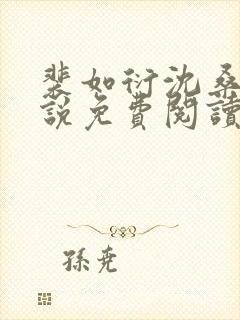 裴如衍沈桑
說免費閱讀
孫堯